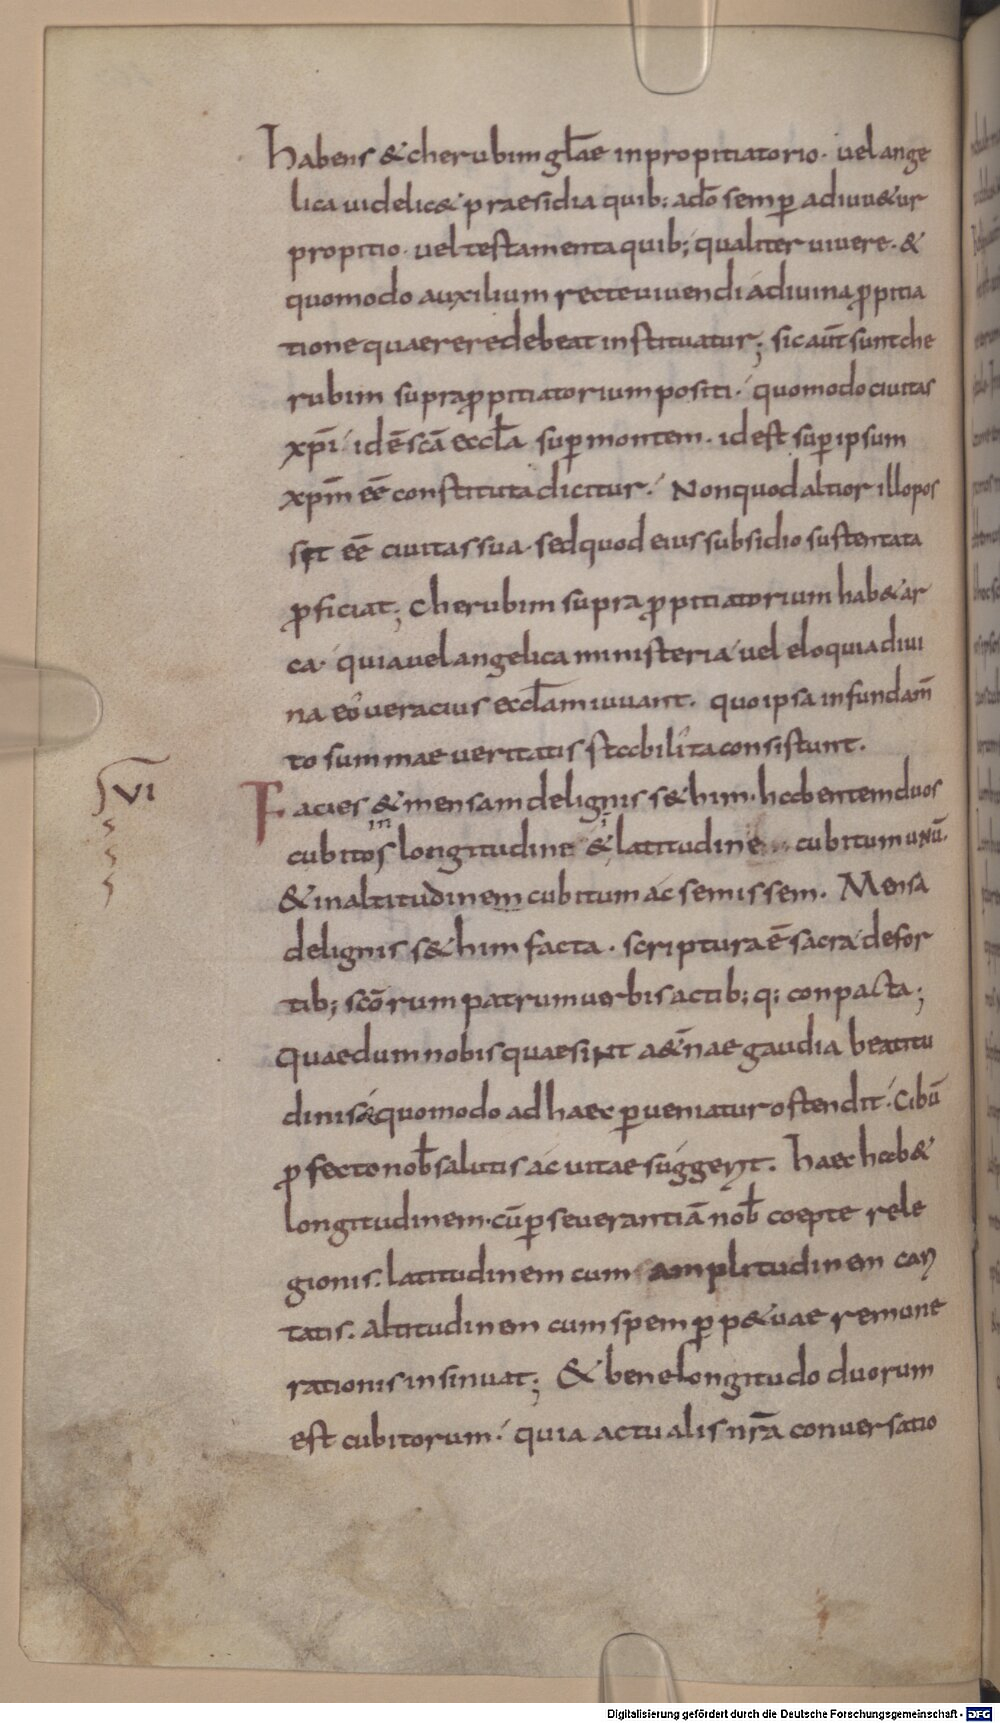 Habens & cherubim gl̅ae in propitiatorio· uel ange
lica uidelic& praesidia quib; a do̅ semp̲ adiuu&ur
propitio· uel testamenta quib; qualiter uiuere· &
quomodo auxilium recte uiuendi a diuina p̲pitia
tione quaerere debeat instituatur; sic aut̅ sunt che
rubim supra p̲pitiatorium positi· quomodo ciuitas
xp̅i id e̅ sc̅a eccl̅a sup̲ montem· id est sup̲ ipsum
xp̅m ee̅ constituta dicitur· Non quod altior illo pos
sit ee̅ ciuitas sua· sed quod eius subsidio sustentata
p̲ficiat; Cherubim supra p̲pitiatorium hab& ar
ca· quia uel angelica ministeria uel eloquia diui
na eo ueracius eccl̅am iuuant· quo ipsa in fundam̅
to summae ueritatis stabilita consistunt·
VI
Facies & mensam de lignis s&him· habentem duos
cubitos in longitudine & i latitudine cubitum unu̅·
& in altitudinem cubitum ac semissem· Mensa
de lignis s&him facta· scriptura e̅ sacra de for
tib; sc̅orum patrum uerbis actib; q; conpacta;
Quae dum nobis quae sint a&̅nae gaudia beatitu
dinis & quomodo ad haec p̲ueniatur ostendit· Cibu̅
p̲fecto nob̅ salutis ac uitae suggerit· Haec hab&
longitudinem· cu̅ p̲seuerantia̅ nob̅ coepte rele
gionis· latitudinem cum amplitudinem cari
tatis· altitudinem cum spem p̲p&uae remune
rationis insinuat; & bene longitudo duorum
est cubitorum· quia actualis nr̅a conuersatio
Digitalisierung gefördert durch die Deutsche Forschungsgemeinschaft - DFG